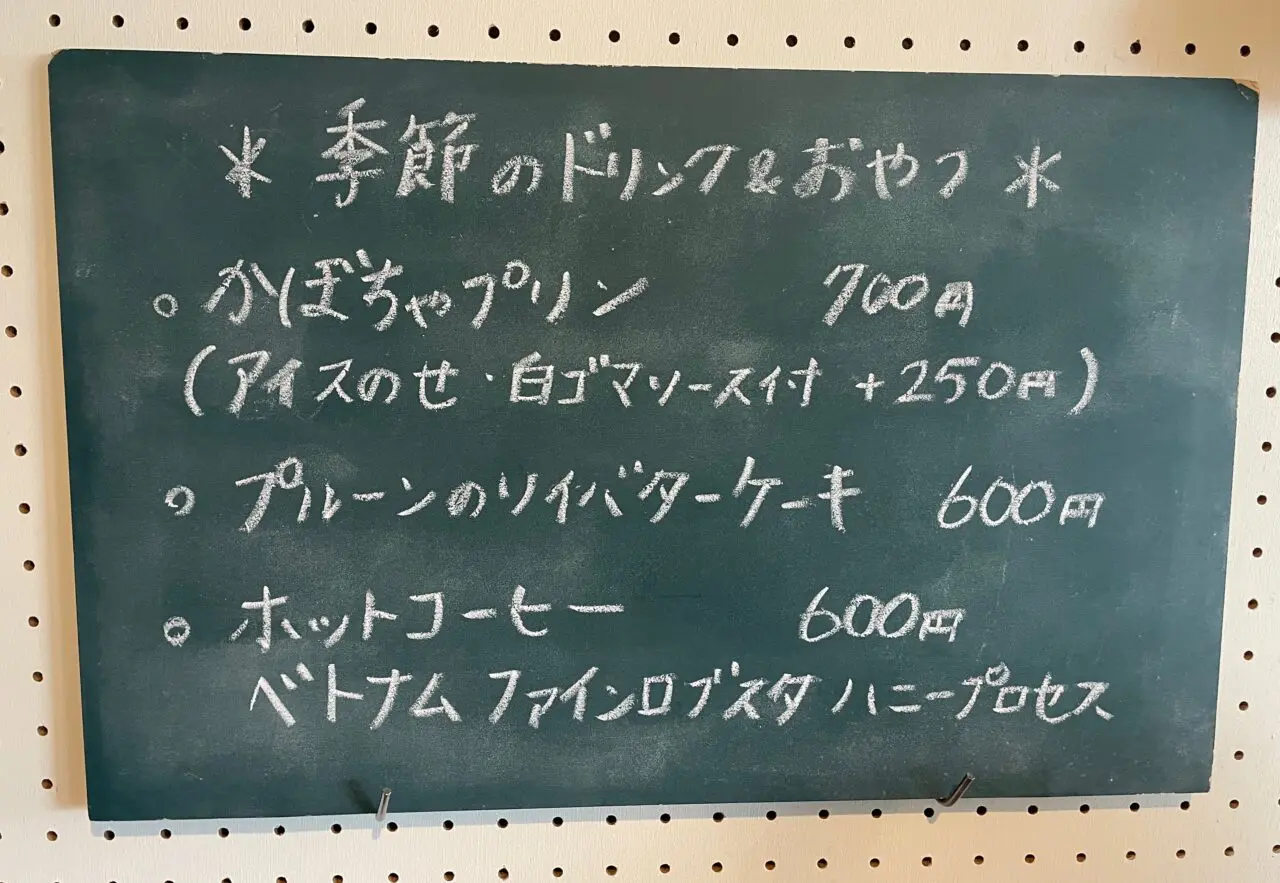 ＊ 季節のドリンク&おやつ ＊
。かぼちゃプリン 700円
(アイスのせ・白ゴマソース付 +250円)
。プルーンのソイバターケーキ 600円
。ホットコーヒー 600円
ベトナム ファインロブスタ ハニープロセス